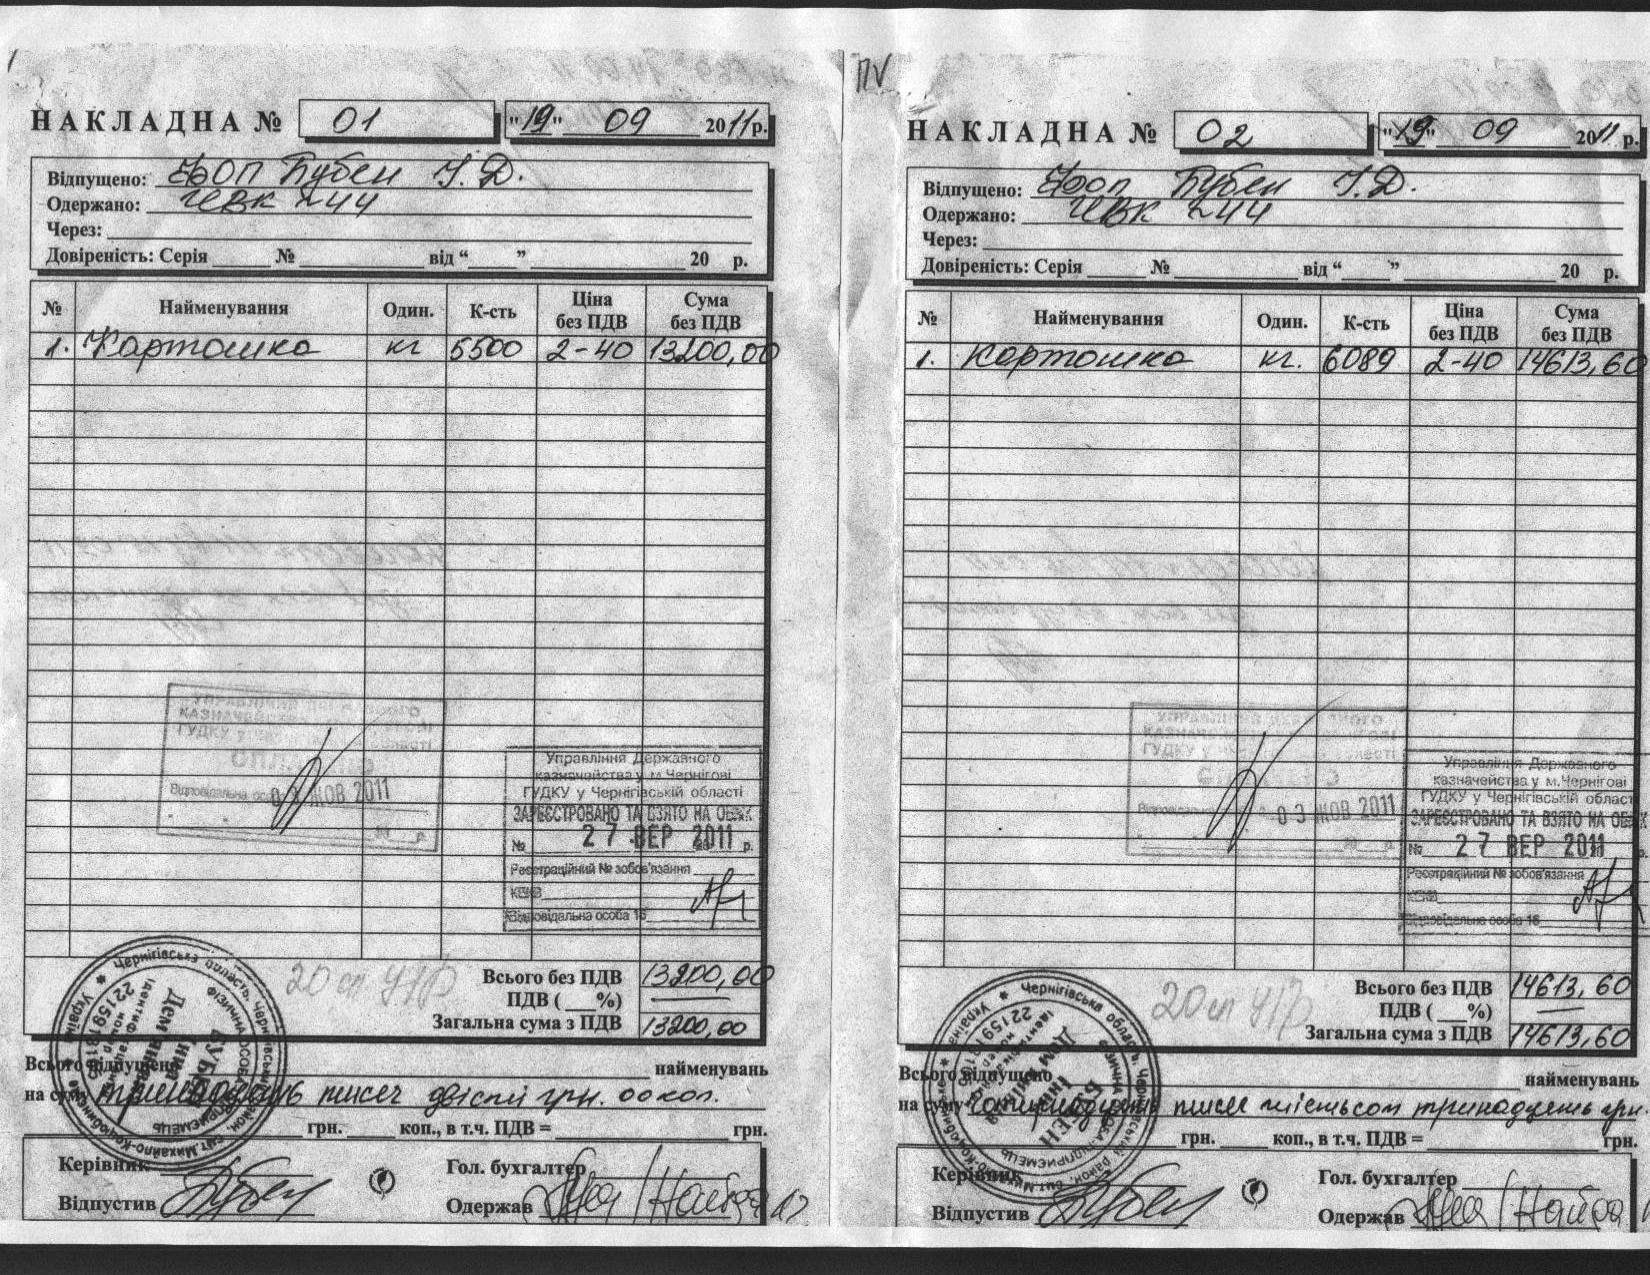 НАКЛАДНА № 01 "19" 09 2011р.
Відпущено: ФОП Бубен І.Д.
Одержано: ЧВК №44
Через:
Довіреність: Серія № від “ ” 20 р.
№ Найменування Один. К-сть Ціна без ПДВ Сума без ПДВ
1. Картошка кг 5500 2-40 13200,00
УПРАВЛІННЯ ДЕРЖАВНОГО
КАЗНАЧЕЙСТВА
ГУДКУ у області
ОПЛАЧЕНО
Відповідальна особа 03 ЖОВ 2011
Управління Державного
казначейства у м.Чернігові
ГУДКУ у Чернігівській області
ЗАРЕЄСТРОВАНО ТА ВЗЯТО НА ОБЛІК
№ 27 ВЕР 2011 р.
Реєстраційний № зобов'язання
КЕКВ
Відповідальна особа 16
20 сп
Всього без ПДВ 13200,00
ПДВ ( %)
Загальна сума з ПДВ 13200,00
Всього відпущено найменувань
на суму тринадцять тисеч двісті грн. 00 коп.
грн. коп., в т.ч. ПДВ = грн.
Керівник Гол. бухгалтер
Відпустив Бубен Одержав
Україна * Чернігівська область, Чернігівський район, смт.Михайло-Коцюбинське *
ФІЗИЧНА ОСОБА ПІДПРИЄМЕЦЬ
ПУ
НАКЛАДНА № 02 "19" 09 2011 р.
Відпущено: ФОП Бубен І.Д.
Одержано: ЧВК №44
Через:
Довіреність: Серія № від “ ” 20 р.
№ Найменування Один. К-сть Ціна без ПДВ Сума без ПДВ
1. Картошка кг. 6089 2-40 14613,60
УПРАВЛІННЯ ДЕРЖАВНОГО
КАЗНАЧЕЙСТВА
ГУДКУ у області
03 ЖОВ 2011
Управління Державного
казначейства у м.Чернігові
ГУДКУ у Чернігівській област
ЗАРЕЄСТРОВАНО ТА ВЗЯТО НА ОБЛІК
№ 27 ВЕР 2011
Реєстраційний № зобов'язання
КЕКВ
Відповідальна особа 16
20 сп
Всього без ПДВ 14613,60
ПДВ ( %)
Загальна сума з ПДВ 14613,60
Всього відпущено найменувань
на суму чотирнадцять тисеч шістьсот тринадцять грн.
грн. коп., в т.ч. ПДВ = грн.
Керівник Гол. бухгалтер
Відпустив Бубен Одержав
Україна * Чернігівська область, Чернігівський район, смт.Михайло-Коцюбинське *
ФІЗИЧНА ОСОБА ПІДПРИЄМЕЦЬ